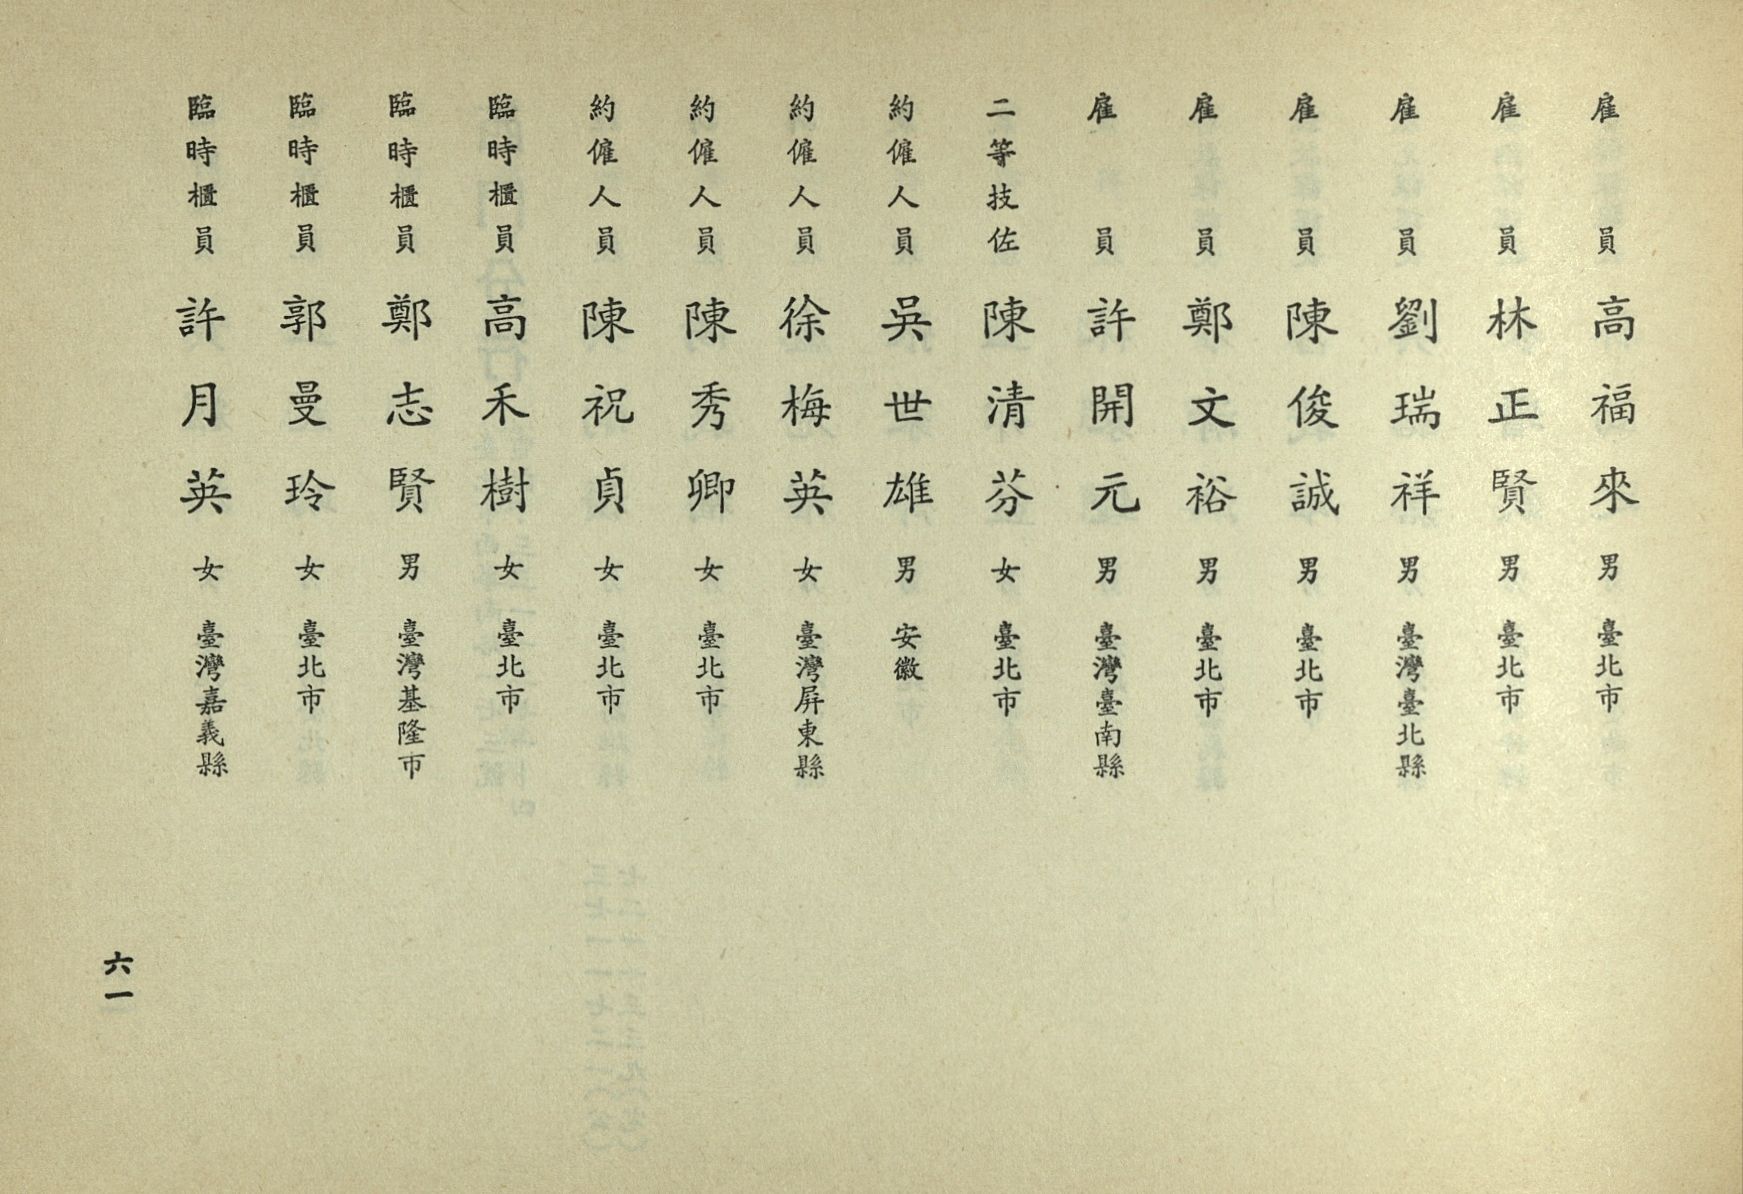 雇員 高福來 男 臺北市
雇員 林正賢 男 臺北市
雇員 劉瑞祥 男 臺灣臺北縣
雇員 陳俊誠 男 臺北市
雇員 鄭文裕 男 臺北市
雇員 許開元 男 臺灣臺南縣
二等技佐 陳清芬 女 臺北市
約僱人員 吳世雄 男 安徽
約僱人員 徐梅英 女 臺灣屏東縣
約僱人員 陳秀卿 女 臺北市
約僱人員 陳祝貞 女 臺北市
臨時櫃員 高禾樹 女 臺北市
臨時櫃員 鄭志賢 男 臺灣基隆市
臨時櫃員 郭曼玲 女 臺北市
臨時櫃員 許月英 女 臺灣嘉義縣
六一